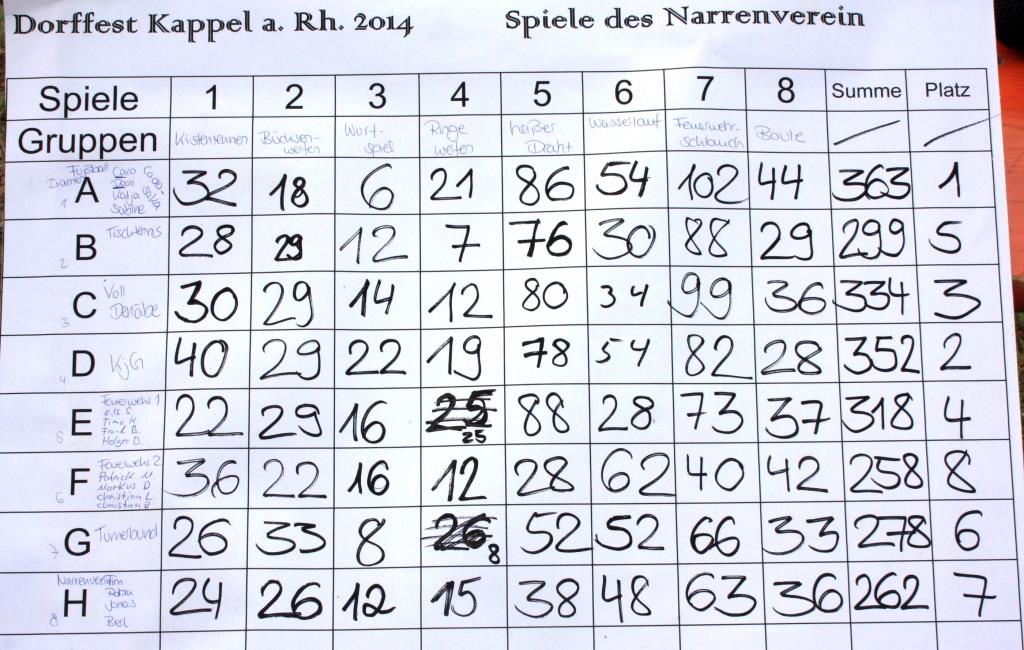 Dorffest Kappel a. Rh. 2014 Spiele des Narrenverein
Spiele 1 2 3 4 5 6 7 8 Summe Platz
Gruppen Kistenrennen Büchsen-werfen Wurf-spiel Ringe werfen heißer Draht Wasserlauf Feuerwehr-schlauch Boule
1 Fußball Damen A Caro Dani Katja Sabine 32 18 6 21 86 54 102 44 363 1
2 B Tischtennis 28 29 12 7 76 30 88 29 299 5
3 C Voll Denäbe 30 29 14 12 80 34 99 36 334 3
4 D KjG 40 29 22 19 78 54 82 28 352 2
5 E Feuerwehr 1 Timo H. Frank B. Holger B. 22 29 16 25 25 88 28 73 37 318 4
6 F Feuerwehr 2 Patrick M. Markus D. Christian L. Christian R. 36 22 16 12 28 62 40 42 258 8
7 G Turnerbund 26 33 8 26 8 52 52 66 33 278 6
8 Narrenverein H Tim Robin Jonas 24 26 12 15 38 48 63 36 262 7